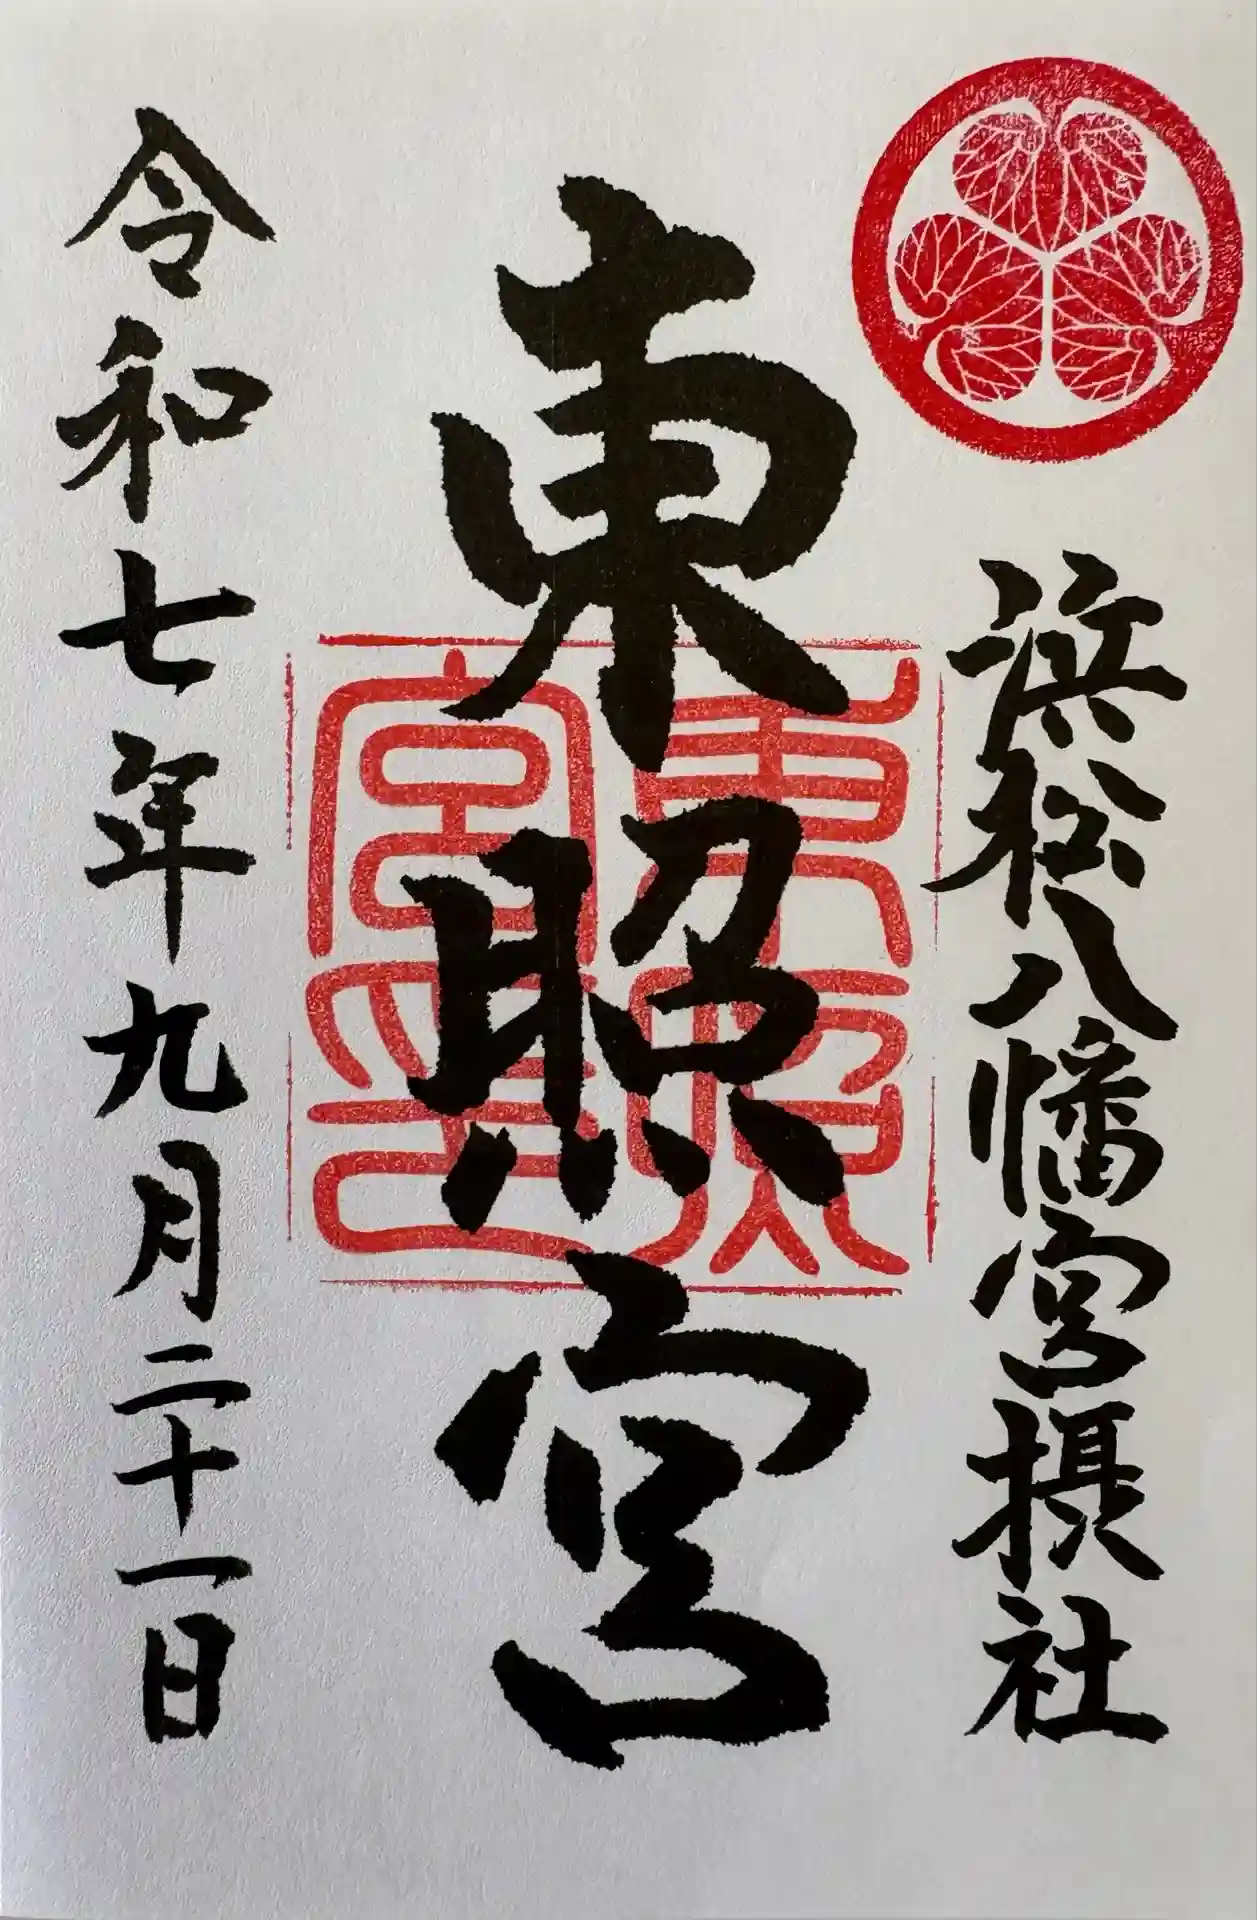 浜松八幡宮摂社
東照宮
東照
宮印
令和七年九月二十一日